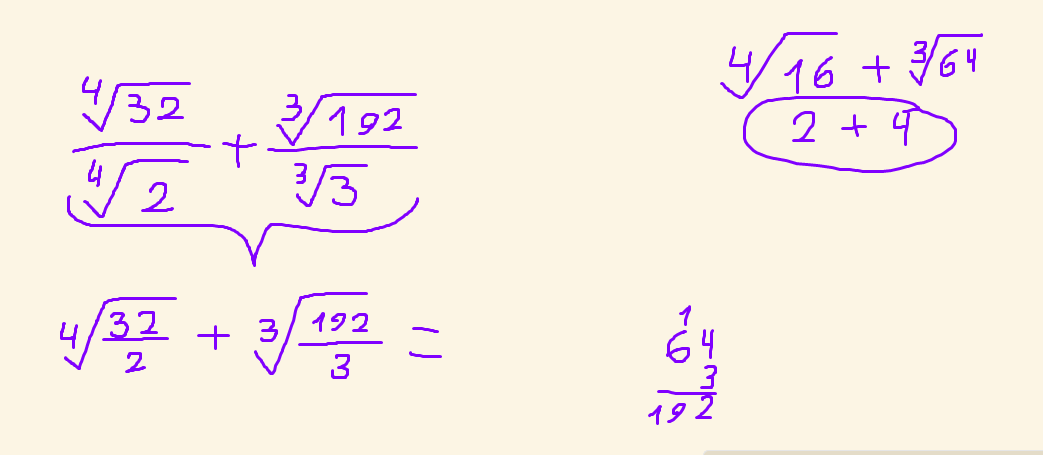 ⁴√32 / ⁴√2 + ³√192 / ³√3
⁴√(32/2) + ³√(192/3) =
⁴√16 + ³√64
2 + 4
1
64
3
192